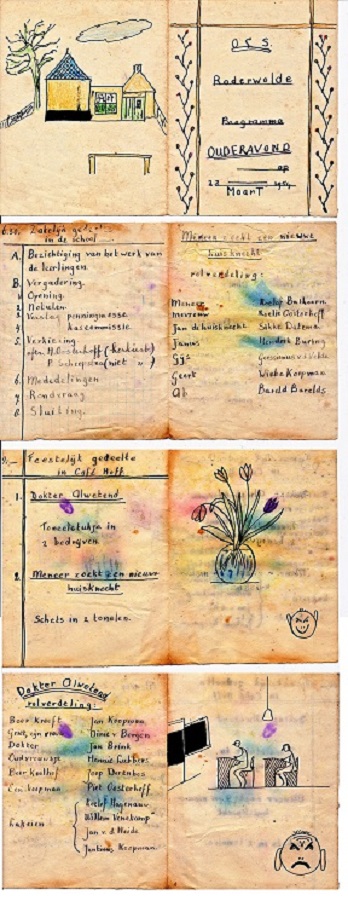 O.L.S.
Roderwolde
Programma
OUDERAVOND
op
MAART
Zakelijk
in de school
A. Bezichtiging van het werk van
de leerlingen.
B. Vergadering.
1. Opening.
2. Notulen
3. Verslag penningmeesse
4. kascommissie.
5. Verkiezing
aftr. H. Oosterhoff (herkiesb)
P. Scheepstra (niet)
6. Mededelingen
7. Rondvraag
8. Sluiting.
Meneer zoekt een nieuwe
huisknecht
rolverdeling:
Meneer Roelof Balkema
Mevrouw Roelie Oosterhoff
Jan de huisknecht Sikke Datema
Janus Hendrik Buring
Gijs
Geert Wiebe Koopman
Ab Bareld Barelds
Feestelijk gedeelte
in Café Hoff
1. Dokter Alwetend
Toneelstukje in
2 bedrijven
2. Meneer zoekt een nieuwe
huisknecht
Schets in 2 tonelen.
Dokter Alwetend
rolverdeling:
Boer Kreeft Jan Koopman
Dinie v Bergen
Dokter Jan Brink
Hennie
Joop
Een koopman Piet Oosterhoff
Lakeien Roelof Hagenauw
Willem Venekamp
Jan v.d. Heide
Koopman.